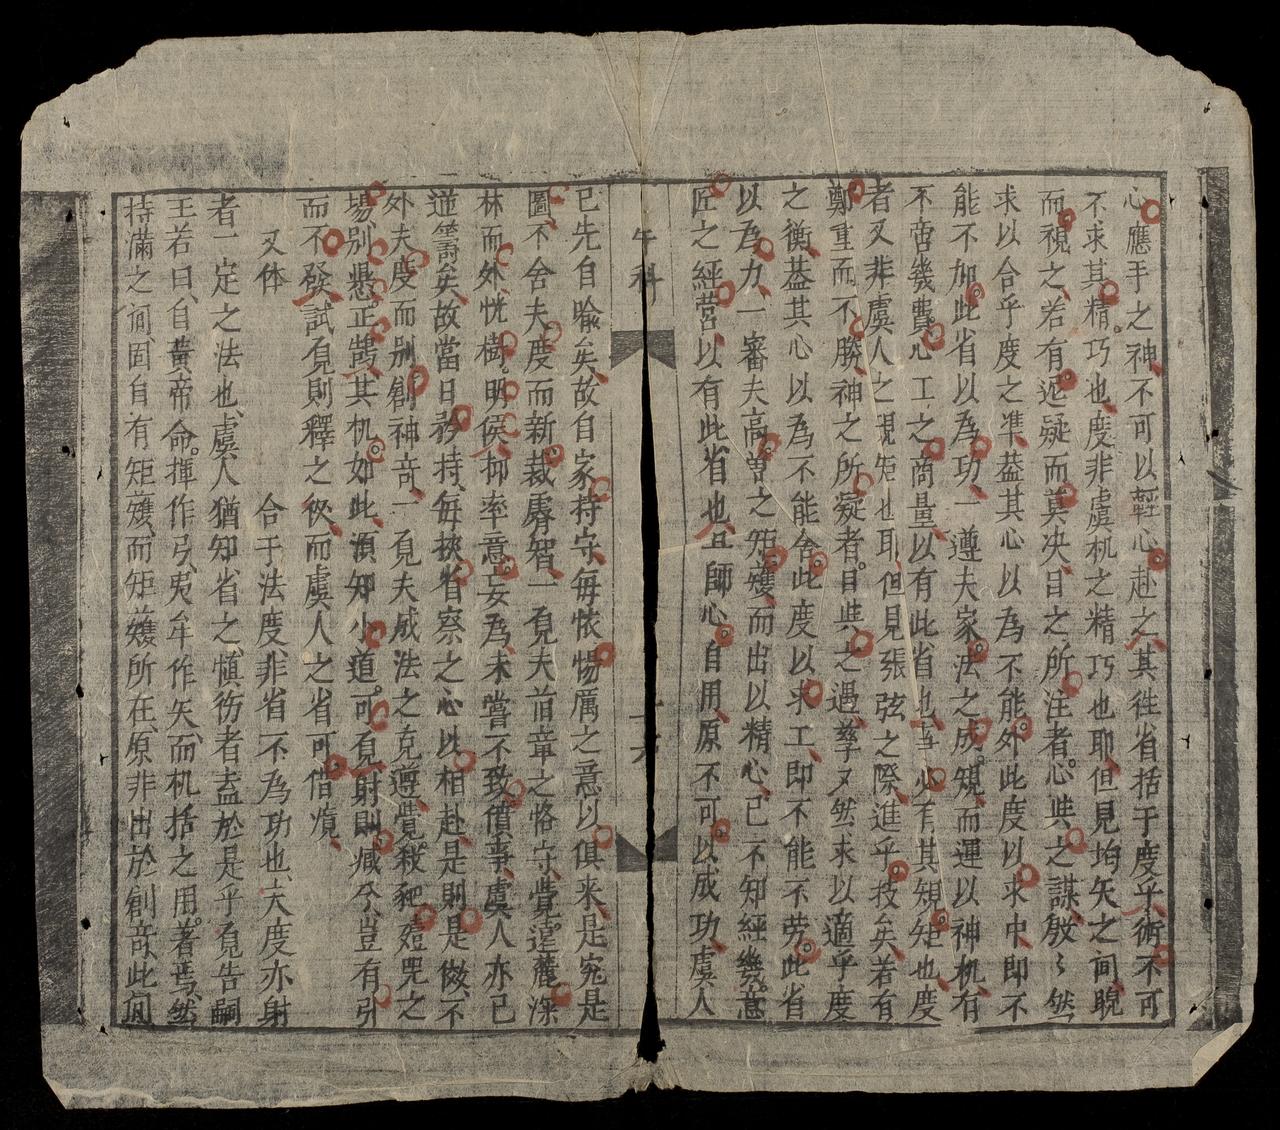 心應手之神不可以輕心赴之其徃省括于度乎術不可
不求其精巧也度非虞机之精巧也耶但見均矢之间睨
而視之若有遲疑而莫决目之所注者心與之謀殷々然
求以合乎度之凖葢其心以為不能外此度以求中即不
能不加此省以為功一遵夫家法之成規而運以神机有
不啻幾費心工之商量以有此省也当必有其規矩也度
者又非虞人之規矩也耶但見張弦之際進乎技矣若有
鄭重而不勝神之所凝者目與之遇孳又然求以適乎度
之衡葢其心以為不能舍此度以求工即不能不劳此省
以為力一審夫高曽之矩矱而出以精心己不知經幾意
匠之經营以有此省也且師心自用原不可以成功虞人
午科 十六
已先自喻矣故自家持守每恢惕厲之意以俱来是宛是
圖不舍夫度而新裁㫷智一覓夫旧章之恪守觉逹麓深
林而外恍樹明侯抑率意妄為未嘗不致僨事虞人亦已
逆籌矣故當日矜持每挾省察之心以相赴是則是傚不
外夫度而别創神竒一覓夫成法之克遵觉殺豝殪兕之
場别懸正鵠其机如此須知小道可覓射則臧兮豈有引
而不發試覓則釋之彼而虞人之省可借烦
又体 合于法度非省不為功也夫度亦射
者一定之法也虞人猶知省之慎彷者盍於是乎覓告嗣
王若曰自黄帝命揮作弓夷牟作矢而机括之用著焉然
持滿之间固自有矩矱而矩矱所在原非出於創竒此间